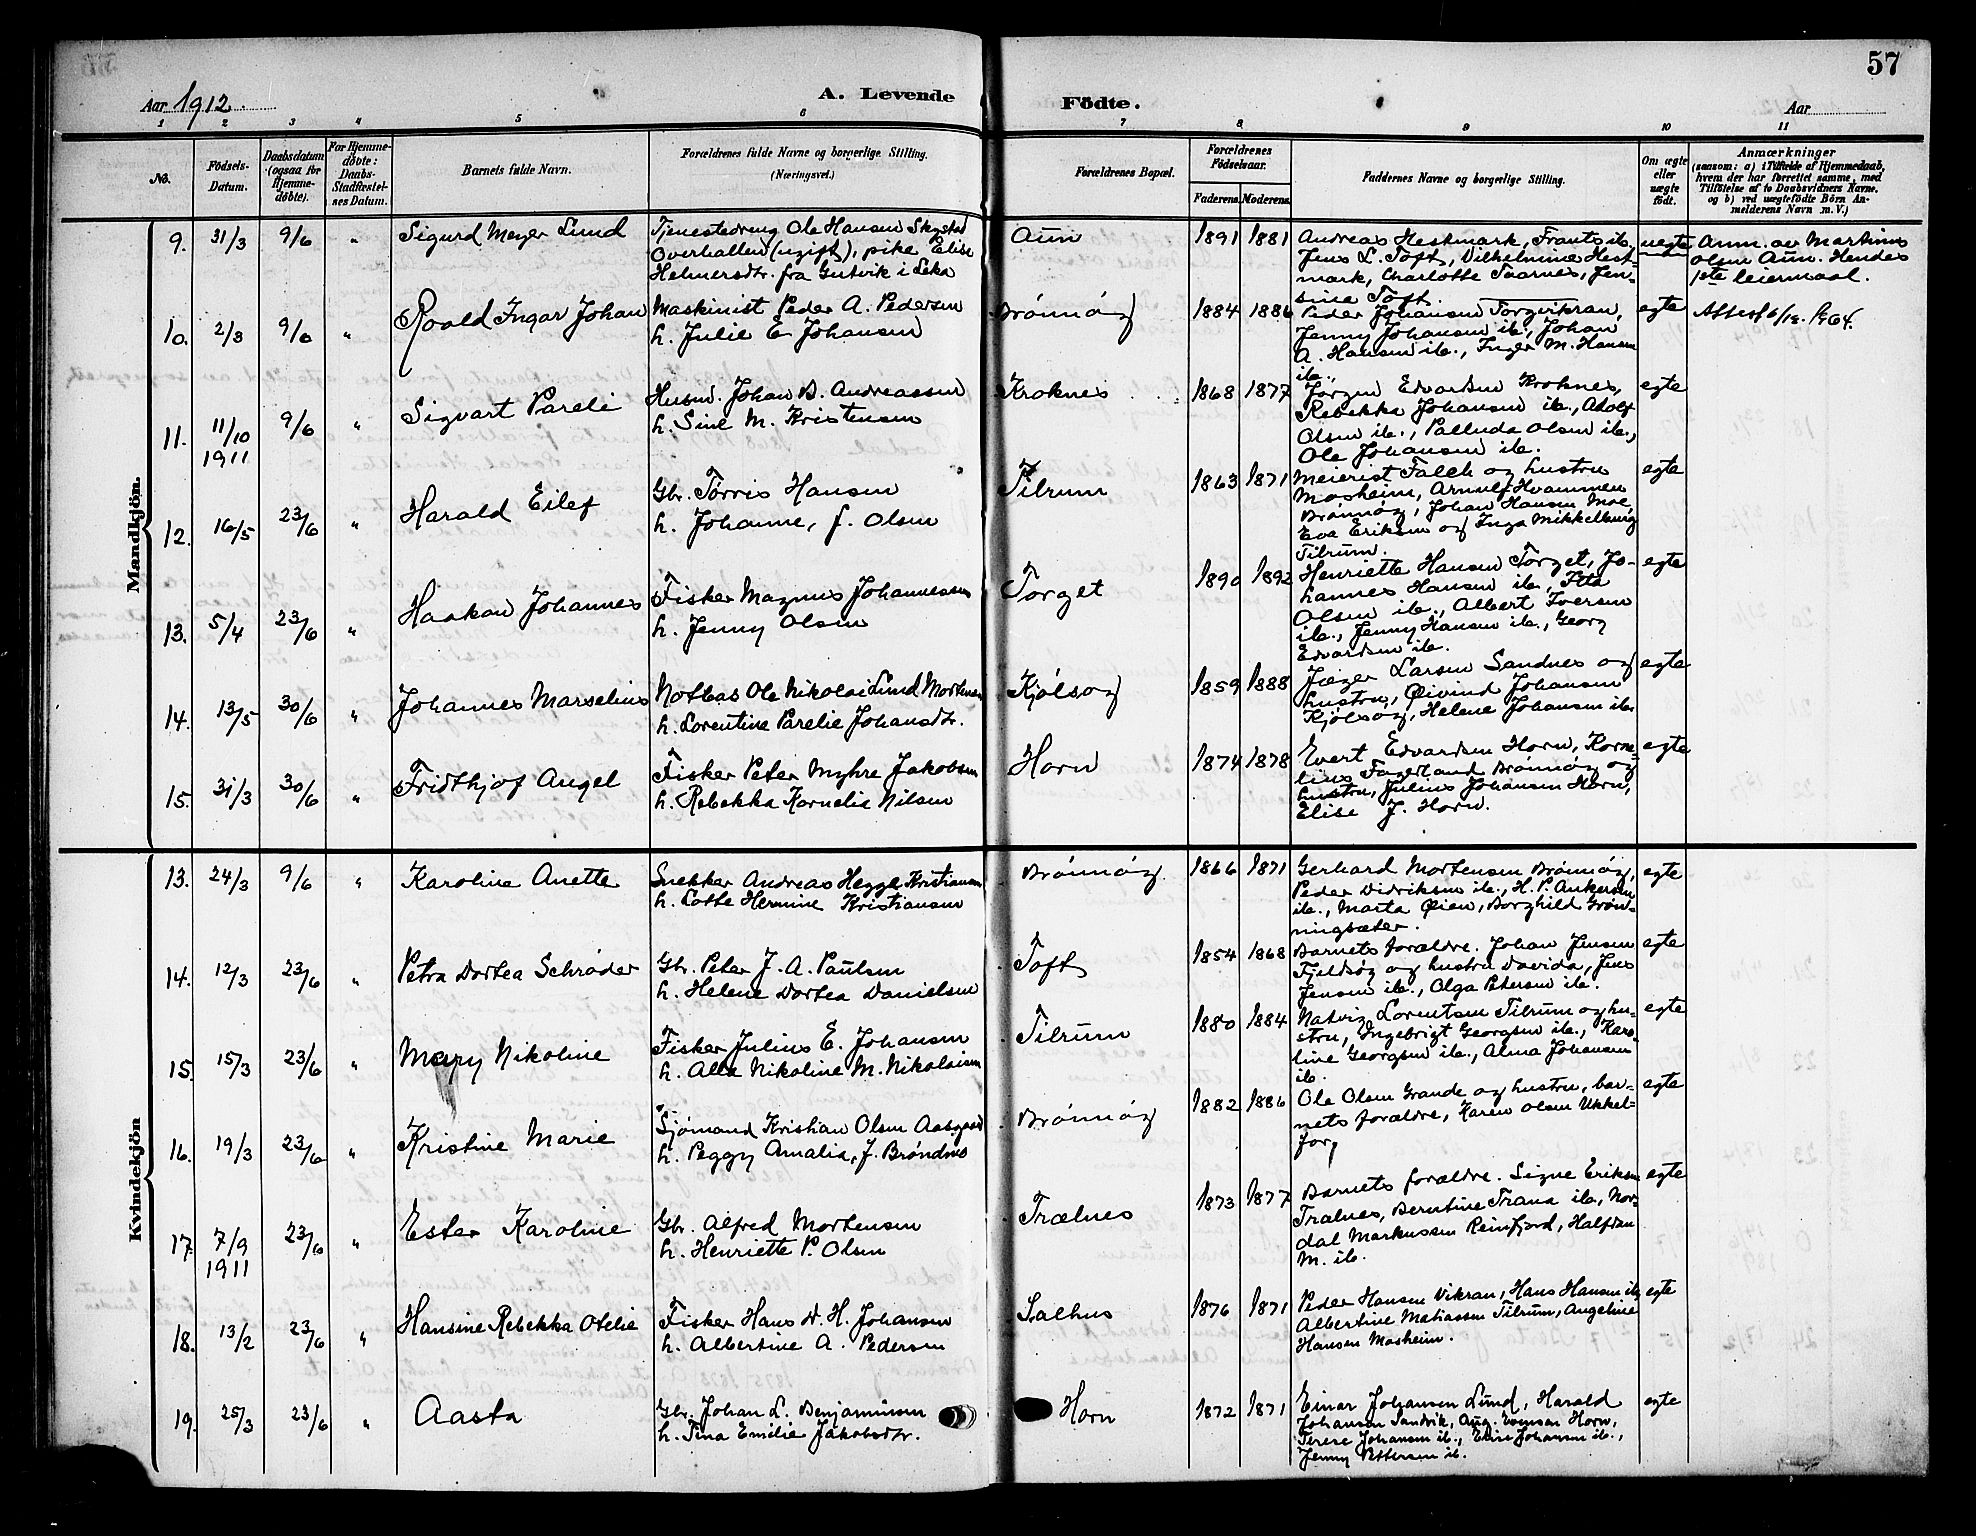 57
Aar 1912.
A. Levende
Födte.
Aar
1 2 3 4 5 6 7 8 9 10 11
No.
Födsels-
Datum.
Daabsdatum
(ogsaa for
Hjemme-
döbte).
For Hjemme-
döbte:
Daabs-
Stadfæstel-
ses Datum.
Barnets fulde Navn.
Forældrenes fulde Navne og borgerlige Stilling.
(Næringsvei.)
Forældrenes Bopæl.
Forældrenes
Födselsaar.
Faderens. Moderens.
Faddernes Navne og borgerlige Stilling.
Om ægte
eller
uægte
födt.
Anmærkninger
(saasom: a) i Tilfælde af Hjemmedaab,
hvem der har forrettet samme, med
Tilföielse af to Daabsvidners Navne.
og b) ved uægtefödte Börn An-
melderens Navn m. V.)
Mandkjön.
9. 31/3 9/6 " Sigurd Meyer Lund
Tjenestedreng Ole Hansen Skystad
Overhallen (ugift), pike Elise
Helmersdtr. fra Gutvik i Leka
Aun 1891 1881
Andreas Hestmark, Frants ib.,
Jens L. Toft, Vilhelmine Hest-
mark, Charlotte Taarnes, Jen-
sine Toft.
uegte
Anm. av Martinus
Olsen Aun. Hendes
1ste leiermaal.
10. 2/3 9/6 " Roald Ingar Johan
Maskinist Peder A. Pedersen
h. Julie E. Johansen
Brönnöy 1884 1886
Peder Johansen Torgerkran,
Jenny Johansen ib., Johan
A. Hansen ib., Inger M. Hansen
ib.
egte
11. 11/10 1911 9/6 " Sigvart Pareli
Husmd. Johan B. Andreassen
h. Sine M. Kristensen
Kroknes 1868 1877
Jörgen Edvardsen Kroknes,
Rebekka Johansen ib., Adolf
Olsen ib., Palluda Olsen ib.,
Ole Johansen ib.
egte
12. 16/5 23/6 " Harald Eilef
Gbr. Torris Hansen
h. Johanne, f. Olsen
Tilrum 1863 1871
Meierist Falch og hustru
Mosheim, Arnulf Hvammen
Brönnöy, Johan Hansen Moe,
Eva Eriksen og Inga Mikkelborg
Tilrum.
egte
13. 5/4 23/6 " Haakon Johannes
Fisker Magnus Johannessen
h. Jenny Olsen
Torget 1890 1892
Henriette Hansen Torget, Jo-
hannes Hansen ib., Itta
Olsen ib., Albert Iversen
ib., Jenny Hansen ib., Georg
Edvardsen ib.
egte
14. 13/5 30/6 " Johannes Marselius
Notbas Ole Nikolai Lund Mortensen
h. Lorentine Parelie Johansdtr.
Kjölsöy 1859 1888
Jæger Larsen Sandnes og
hustru, Öivind Johansen
Kjölsöy, Helene Johansen ib.
egte
15. 31/3 30/6 " Fridthjof Angel
Fisker Peter Myhre Jakobsen
h. Rebekka Kornelia Nilsen
Horn 1874 1878
Evert Edvardsen Horn, Korne-
lius Fagerland Brönnöy og
hustru, Julius Johansen Horn,
Elise J. Horn.
egte
Kvindekjön
13. 24/3 9/6 " Karoline Anette
Snekker Andreas Hegge Kristiansen
h. Lotte Hermine Kristiansen
Brönnöy. 1866 1871
Gerhard Mortensen Brönnöy,
Peder Didriksen ib., H. P. Ankersen
ib., Marta Öien, Borghild Grön-
ningsæter.
egte
14. 12/3 23/6 " Petra Dortea Schröder
Gbr. Peter J. A. Paulsen
h. Helene Dortea Danielsen
Toft 1854 1868
Barnets forældre. Johan Jensen
Fjeldsöy og hustru Davida, Jens
Jensen ib., Olga Petersen ib.
egte
15. 15/3 23/6 " Mary Nikoline
Fisker Julius E. Johansen
h. Alta Nikoline M. Nikolaisen
Tilrum 1880 1884
Natvig Lorentsen Tilrum og hu-
stru, Ingebrigt Georgsen ib., Karo-
line Georgsen ib., Alma Johansen
ib.
egte
16. 19/3 23/6 " Kristine Marie
Sjömand Kristian Olsen Aasgaard
h. Peggy Amalia, f. Bröndmo
Brönnöy 1882 1886
Ole Olsen Grande og hustru, bar-
nets forældre, Karen Olsen Ukkel-
forg
egte
17. 7/9 1911 23/6 " Ester Karoline
Gbr. Alfred Mortensen
h. Henriette P. Olsen
Trælnes 1873 1877
Barnets forældre. Signe Eriksen
Trælnes, Berntine Trana ib., Nor-
dal Markussen Reinfjord, Halfdan
M. ib.
egte
18. 13/2 23/6 " Hansine Rebekka Otelie
Fisker Hans N. H. Johansen
h. Albertine A. Pedersen
Salhus 1876 1871
Peder Hansen Vikran, Hans Hansen ib.,
Albertine Matiassen Tilrum, Angeline
Hansen Mosheim.
egte
19. 25/3 23/6 " Aasta
Gbr. Johan L. Benjaminsen
h. Tina Emilie Jakobsdtr.
Horn 1872 1871
Einar Johansen Lund, Harald
Johansen Sandvik, Aug. Evensen Horn,
Terese Johansen ib., Elise Johansen ib.,
Jenny Pettersen ib.
egte